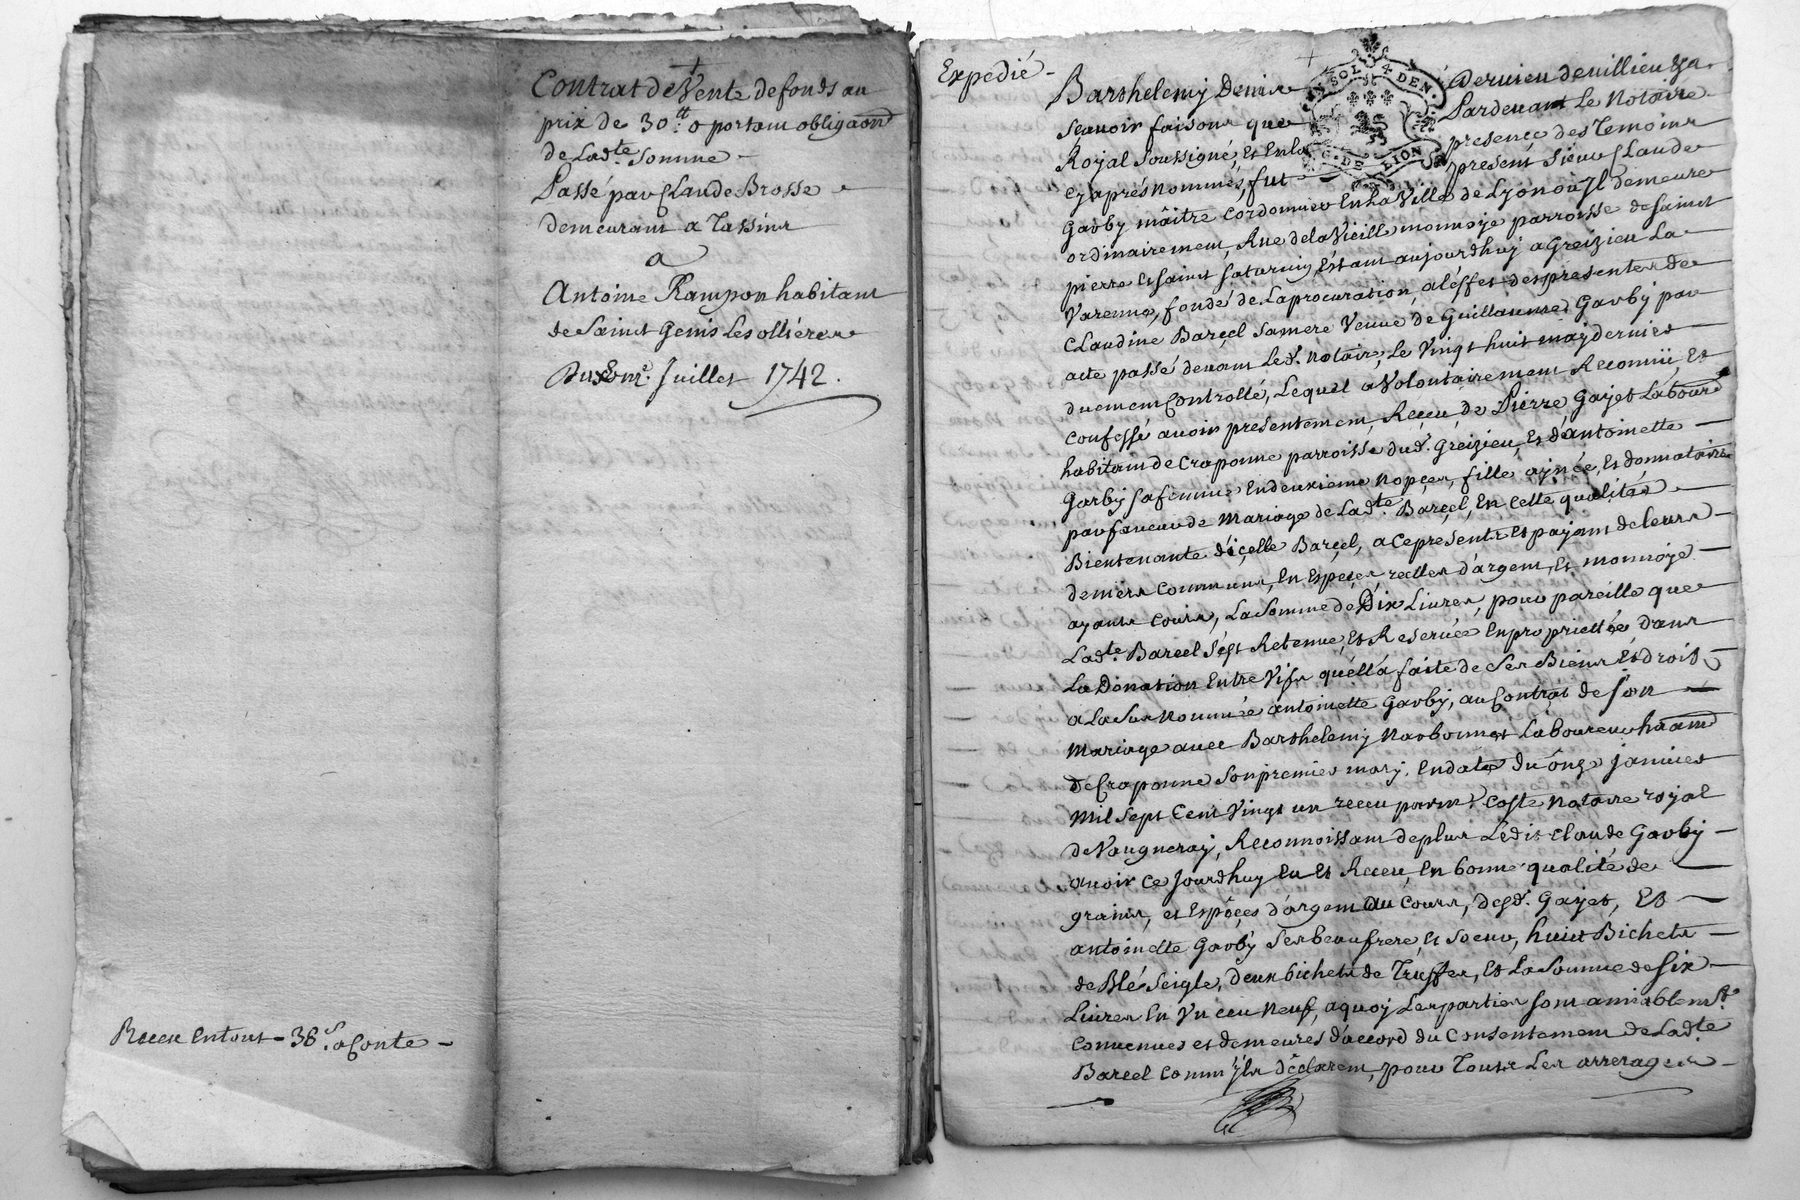 Contrat de Vente de fonds au
prix de 30 lt 0 portant obligaõn
de Ladte. Somme
Passé par Claude Brosse
demeurant a Tassins
a
Antoine Rampon habitant
de Saint Genis Les ollières
Du Juillet 1742.
Receu Entout - 38 s. aConte -
Expedié -
Barthelemy Denis
SOL 4 DEN.
G. DE LION
Scavoir faisons que Pardevant Le Notaire
Royal Soussigné, Et Enla presence des Temoins
Cyaprés nommés, fut présent Sieur Claude
Garby mâitre Cordonnier En La Ville de Lyon où Jl demeure
ordinairement, Rue de la Vieille monnoye parroisse de Saint
pierre Et Saint Saturnin, Estant aujourdhuy a Greizieu La
Varenne, fondé de La procuration, al'éffet des presentes de
Claudine Barcel Sa mere Veuve de Guillaume Garby par
acte passé devant Led. Notaire, Le Vingt huit may dernier
duement Controllé, Lequel a Volontairement Reconnü, Et
Confessé avoir presentement, Receu, de Pierre Gayet Laboureur
habitant de Craponne parroisse dud. Greizieu, Et d'antoinette
Garby Safemme En deuxieme nopces, fille aynée, Et donnataire
par faveur de Mariage de Ladte. Barcel, En Cette qualité
Bientenante d'icelle Barcel, a Ce présents Et payant de leurs
deniers Communs, En Especes, reelles d'argent, Et monnoye
ayants Cours, La Somme de Dix Livres, pour pareille que
Ladte. Barcel S'ést Retenue, Et Reservée En propriettée, dans
La Donation Entre Vifs qu'ellâ faite de Ses Biens Et droits
a La Sus Nommée antoinette Garby, au Contrat de son
Mariage avec Barthelemy Narbonnet Laboureur habitant
de Craponne Son premier mary, En date du onze janvier
Mil Sept Cent Vingt un receu par me. Coste Notaire royal
de Vaugneray, Reconnoissant de plus Ledit Claude Garby
avoir Ce Jourdhuy Eu Et Receu, En bonne qualité de
grains, et Espêces d'argent Au Cours, desd. Gayet, Et
antoinette Garby Ses beaufrere, Et Soeur, huict Bichets
de Blé Seigle, deux bichets de Truffes, Et La Somme de Six
Livres En Un ecu Neuf, a quoy Les parties Sont amiablemt.
Convenues et demeures d'accord du Consentement de Ladte.
Barcel Comm' jls déclarent, pour Touts Les arrerages